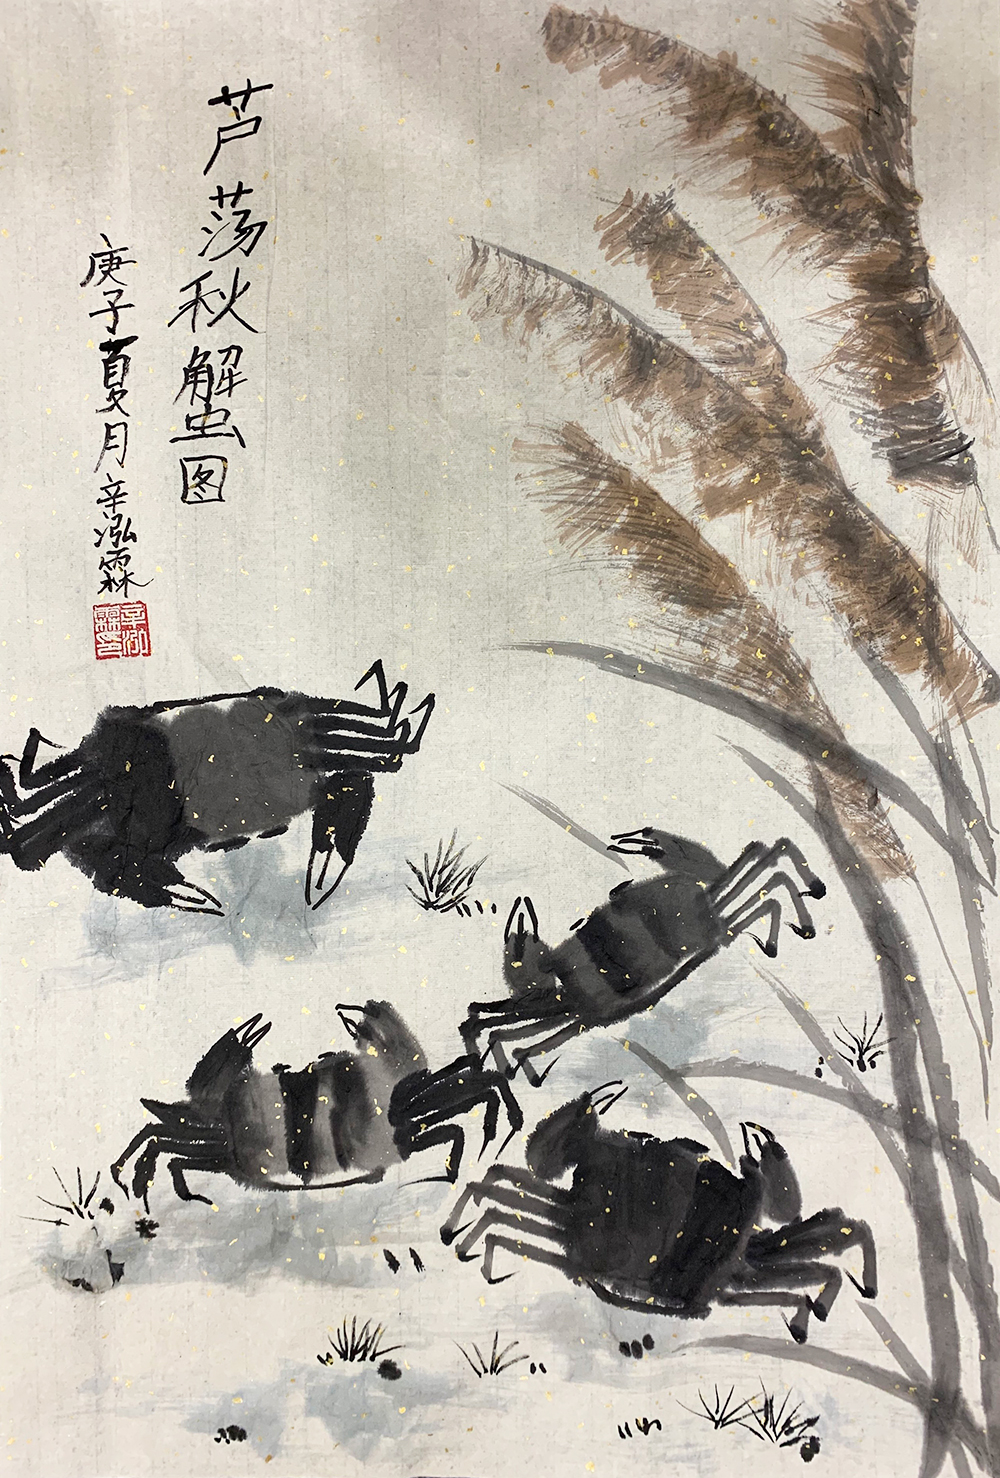 芦荡秋蟹图
庚子夏月辛泓霖
辛泓霖印